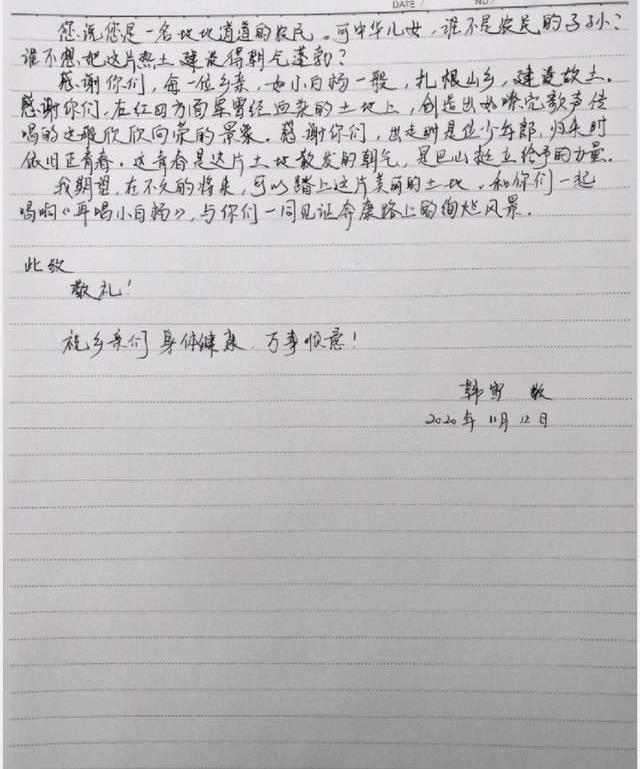 DATE / NO /
您说您是一名地地道道的农民。可中华儿女，谁不是农民的子孙？
谁不想把这片热土建设得朝气蓬勃？
感谢你们，每一位乡亲，如小白杨一般，扎根山乡，建设故土。
感谢你们，在红四方面军曾经血染的土地上，创造出如嘹亮歌声传
唱的这般欣欣向荣的景象。感谢你们，出走时是位少年郎，归来时
依旧正青春。这青春是这片土地散发的朝气，是巴山挺立给予的力量。
我期望，在不久的将来，可以踏上这片美丽的土地，和你们一起
唱啊《再唱小白杨》，与你们一同见证奔康路上的绚烂风景。
此致
敬礼！
祝乡亲们身体健康，万事顺意！
韩寄 敬
2020年11月12日